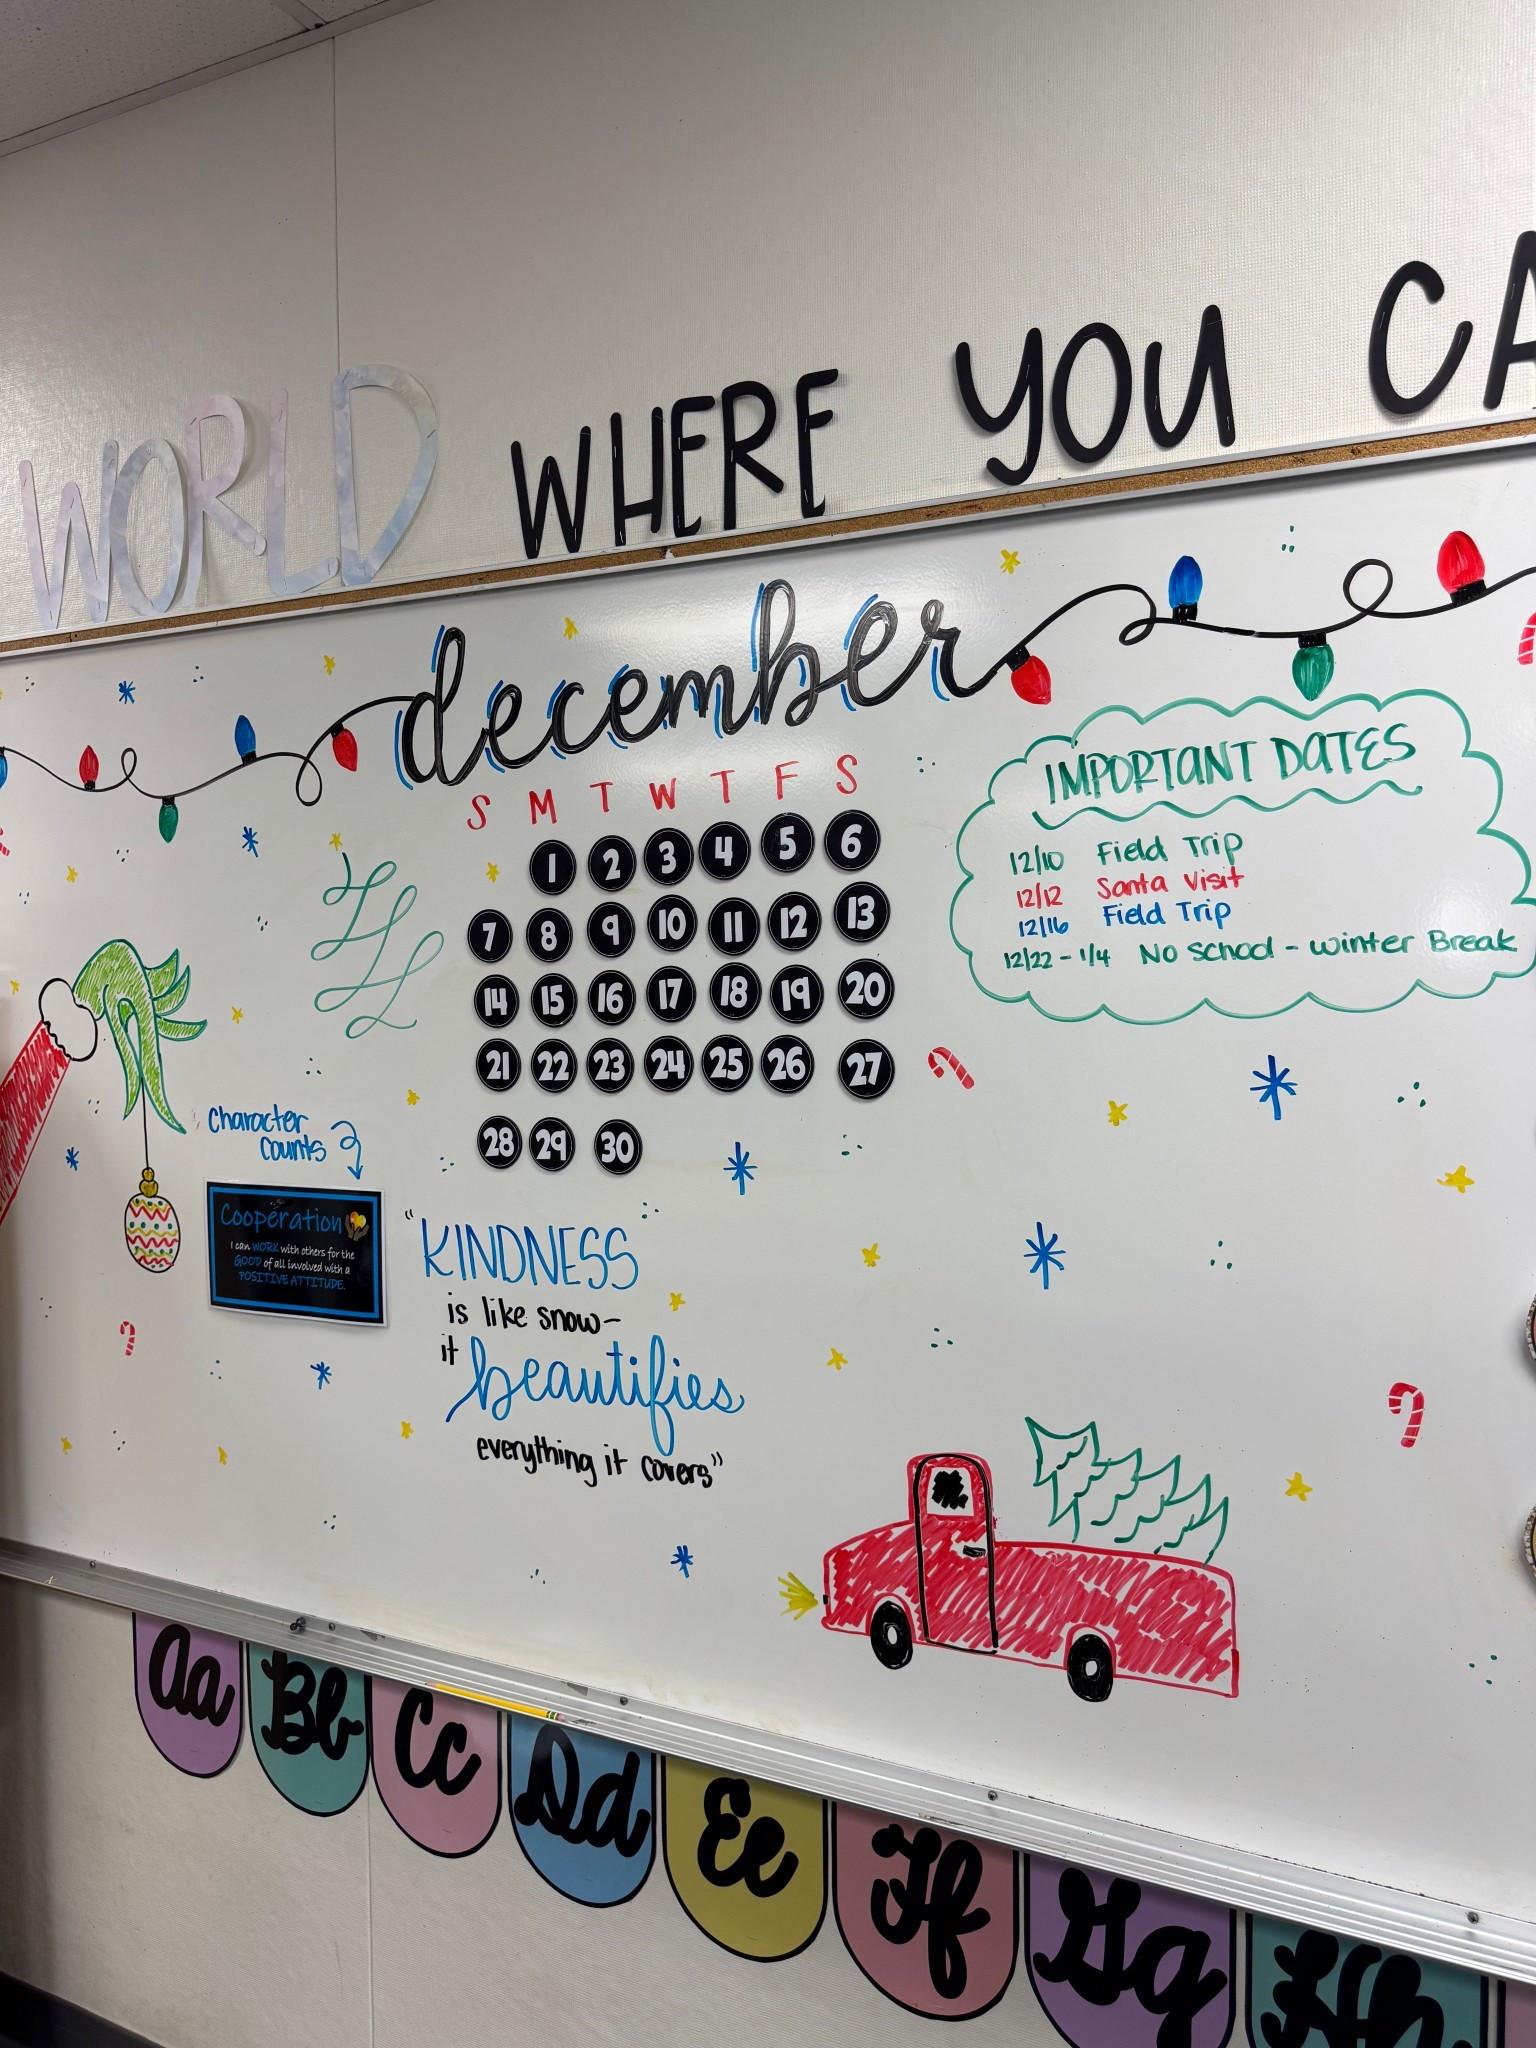 WORLD WHERE YOU CA
december
S M T W T F S
1 2 3 4 5 6
7 8 9 10 11 12 13
14 15 16 17 18 19 20
21 22 23 24 25 26 27
28 29 30
IMPORTANT DATES
12/10 Field Trip
12/12 Santa Visit
12/16 Field Trip
12/22 - 1/4 No School - Winter Break
Character
Counts
Cooperation
I can WORK with others for the
GOOD of all involved with a
POSITIVE ATTITUDE.
"KINDNESS
is like snow-
it beautifies
everything it covers"
Aa Bb Cc Dd Ee Ff Gg Hh